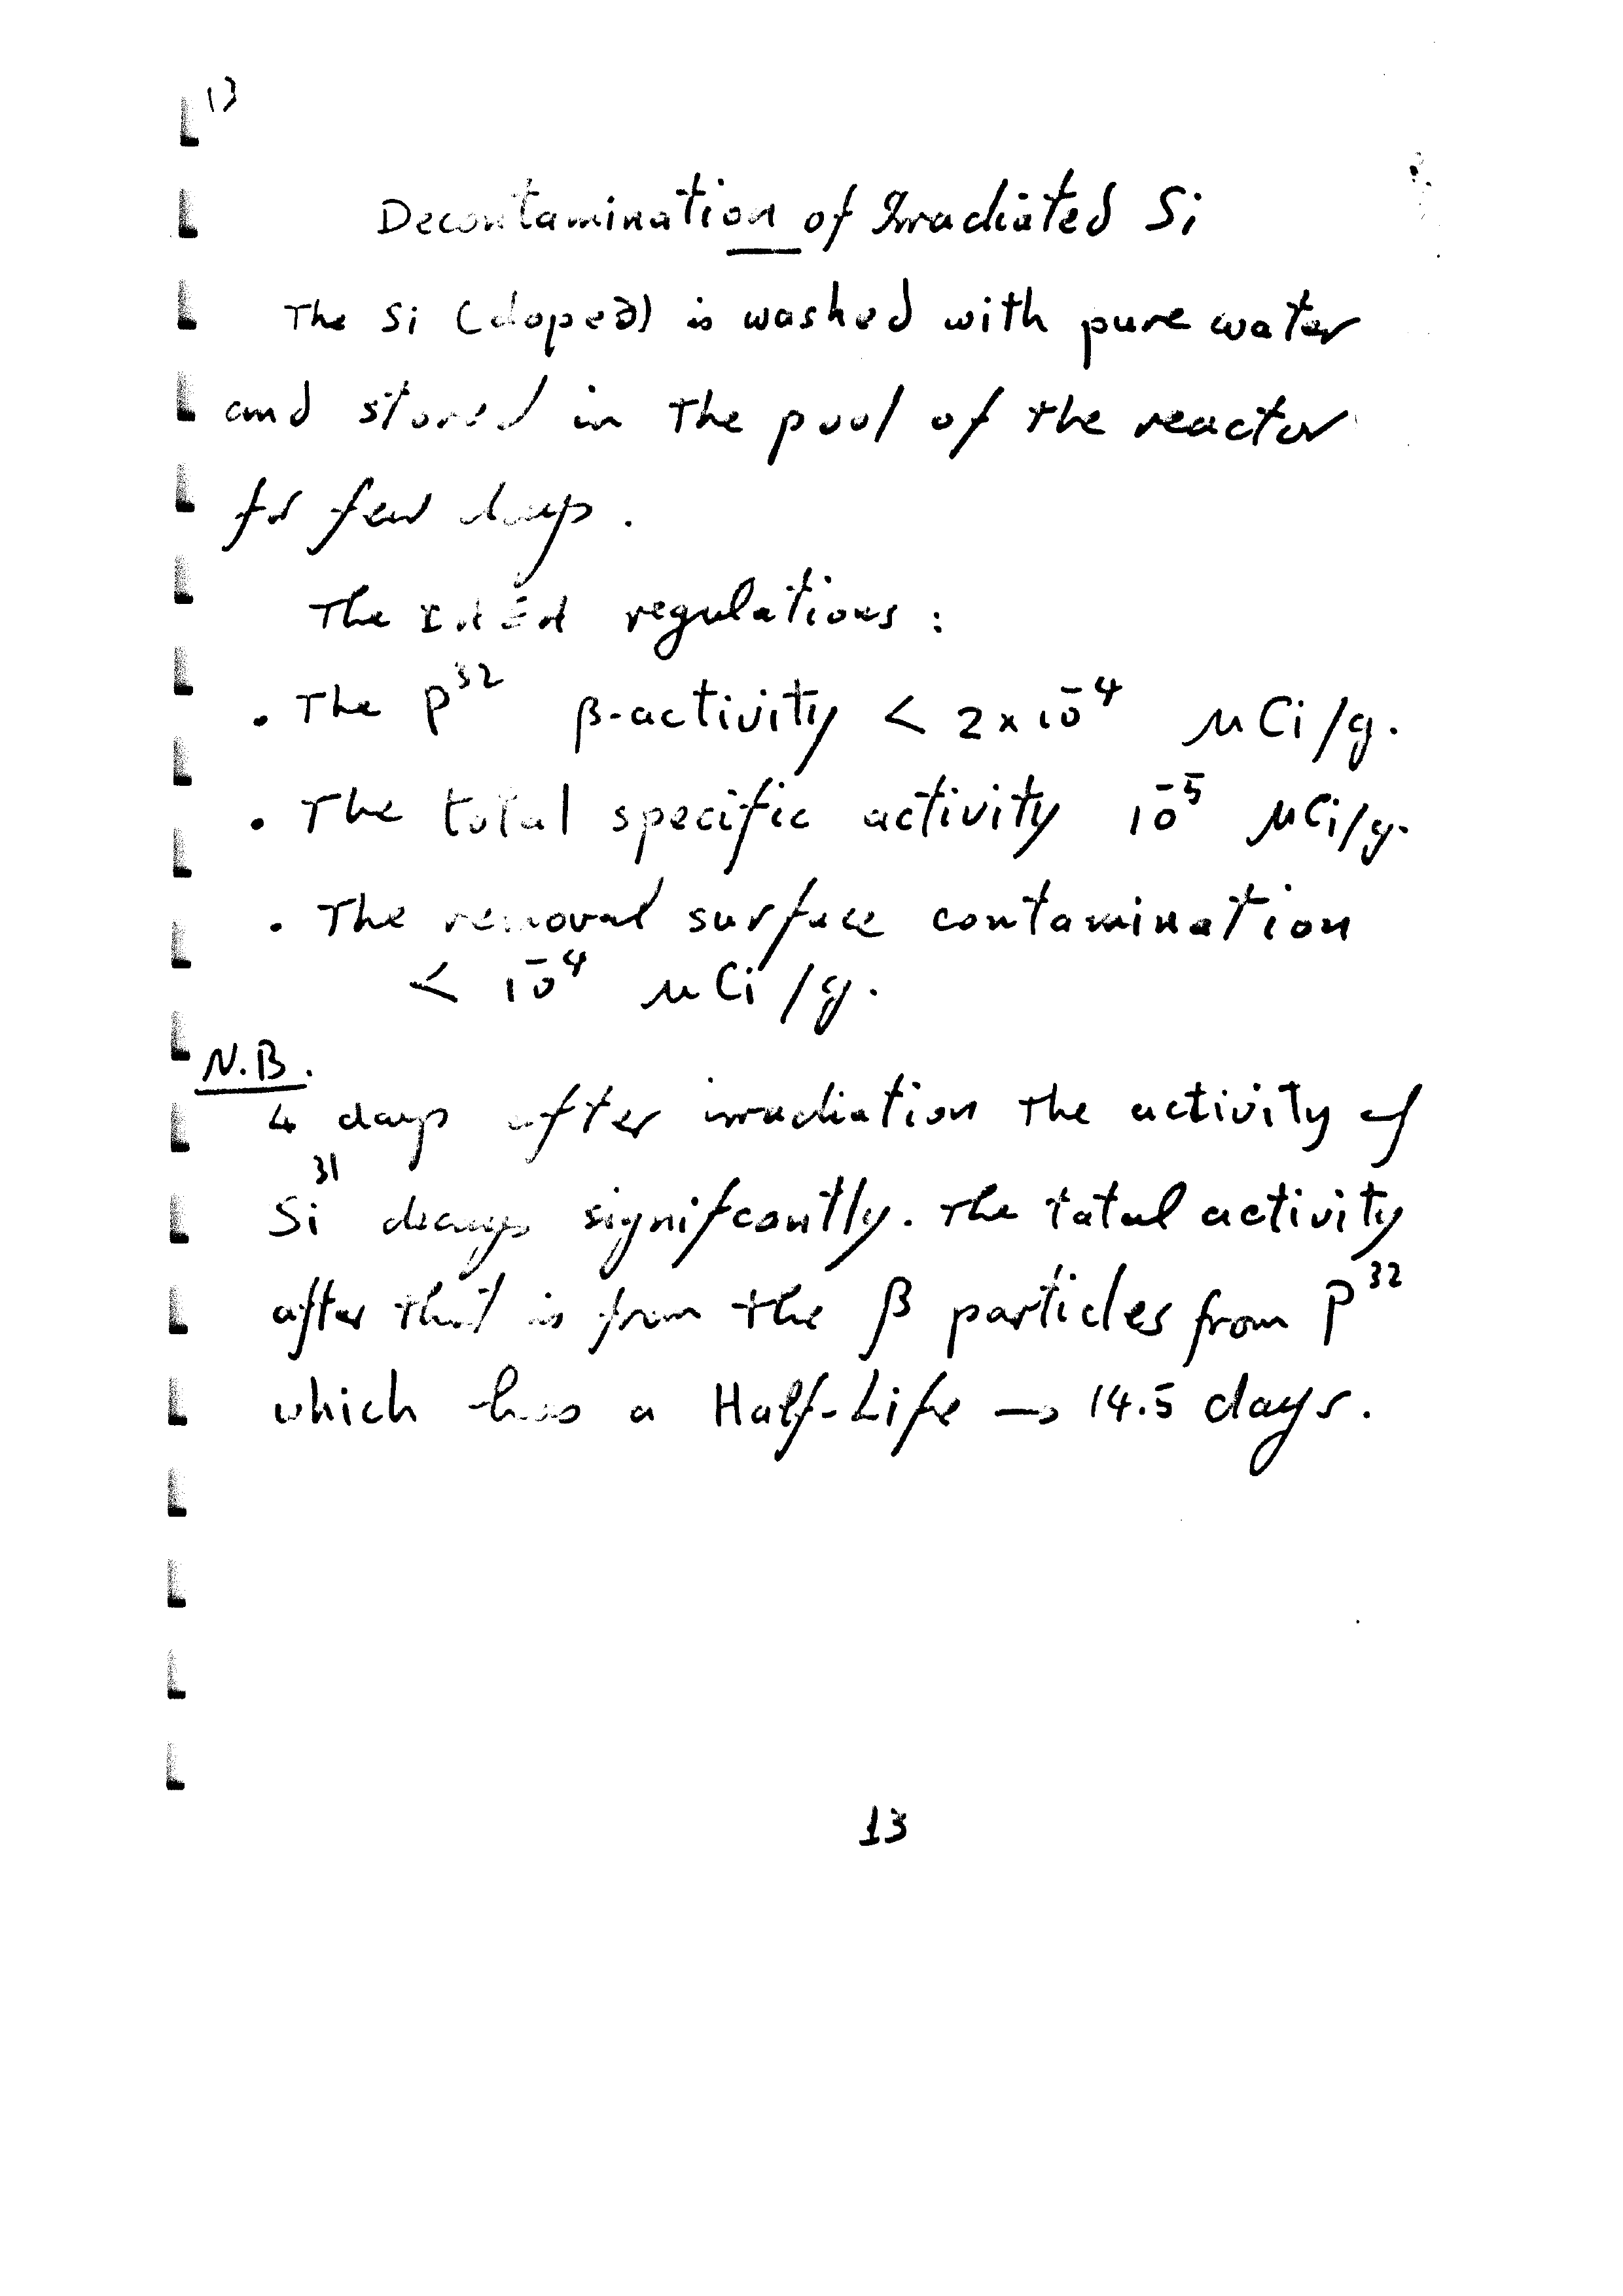 13
Decontamination of Irradiated Si
The Si (doped) is washed with pure water
and stored in the pool of the reactor
for few days.
The IAEA regulations :
. The P³² β-activity < 2x10⁻⁴ μCi/g.
. The total specific activity 10⁻⁵ μCi/g.
. The removal surface contamination
< 10⁻⁴ μCi/g.
N.B.
4 days after irradiation the activity of
Si³¹ decays signifcantly. The total activity
after that is from the β particles from P³²
which has a Half-Life → 14.5 days.
13